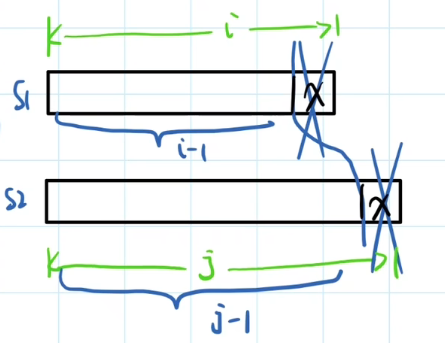 i
S1
x
i-1
S2
x
j
j-1